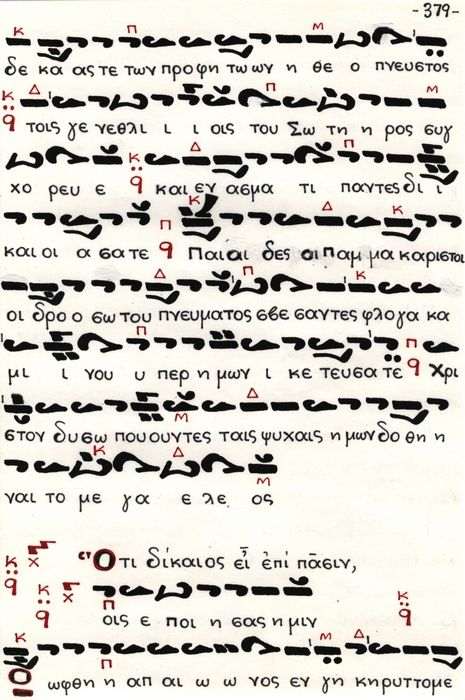 -379-
δε κα ας τε των προ φη τω ων η θε ο πνευστος
τοις γε νεθλι ι ι οις του Σω τη η ρος συγ
χο ρευ ε και εν ασμα τι παντες δι ι
και οι α σα τε Παι αι δες οι παμ μα κα ριστοι
οι δρο ο σω του πνευματος σβε σαντες φλογα κα
μι ι νου υ περ η μων ι κε τευσα τε Χρι
στον δυσω που ουντες ταις ψυχαις η μων δο θη η
ναι το με γα ε λε ος
στ Ότι δίκαιος εἶ ἐπί πᾶσιν,
οις ε ποι η σας η μιν
Ι ωφθη η απ αι ω ω νος εν γη κηρυττομε